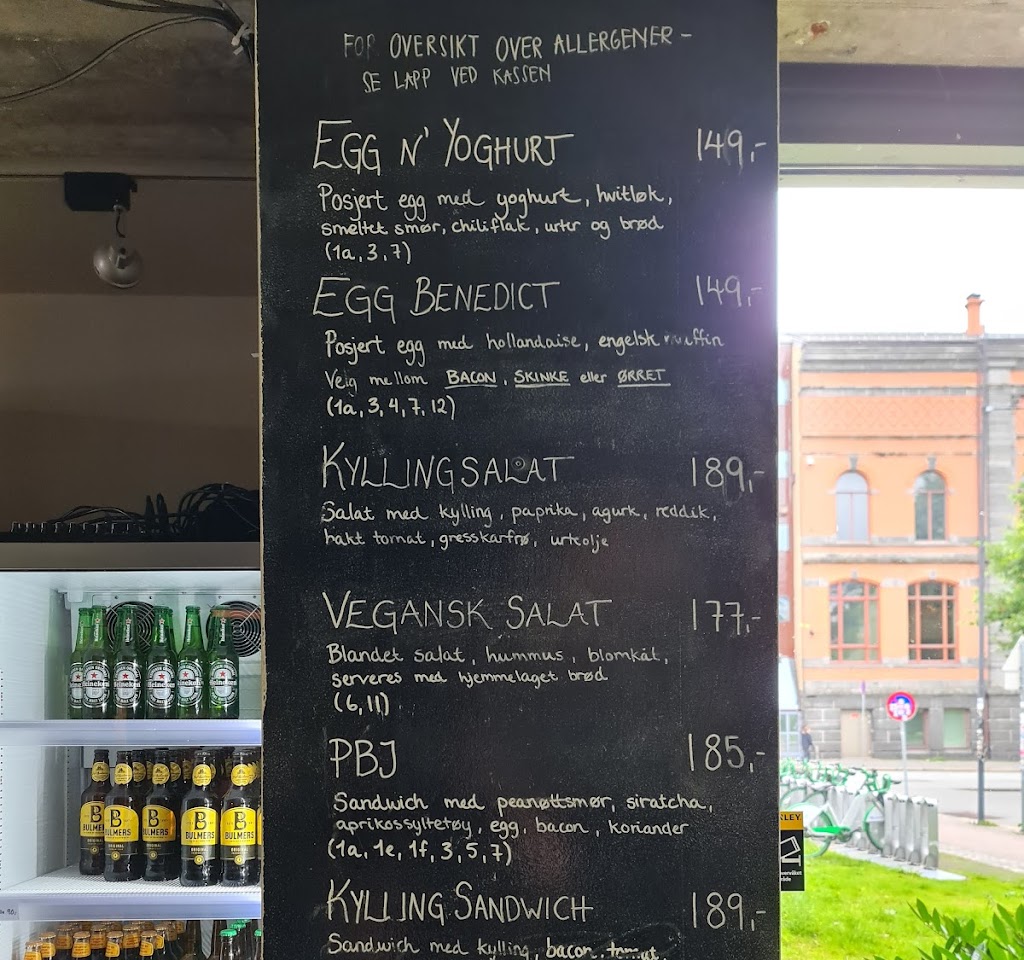 FOR OVERSIKT OVER ALLERGENER -
SE LAPP VED KASSEN
EGG N' YOGHURT 149,-
Posjert egg med yoghurt, hvitløk,
smeltet smør, chiliflak, urter og brød
(1a, 3, 7)
EGG BENEDICT 149,-
Posjert egg med hollandaise, engelsk muffin
Velg mellom BACON, SKINKE eller ØRRET
(1a, 3, 4, 7, 12)
KYLLINGSALAT 189,-
Salat med kylling, paprika, agurk, reddik,
hakt tomat, gresskarfrø, urteolje
VEGANSK SALAT 177,-
Blandet salat, hummus, blomkål,
serveres med hjemmelaget brød
(6, 11)
PBJ 185,-
Sandwich med peanøttsmør, siratcha,
aprikossyltetøy, egg, bacon, koriander
(1a, 1e, 1f, 3, 5, 7)
KYLLING SANDWICH 189,-
Sandwich med kylling, bacon, tomat,
Heineken Heineken Heineken Heineken
BULMERS BULMERS BULMERS BULMERS BULMERS
ORIGINAL